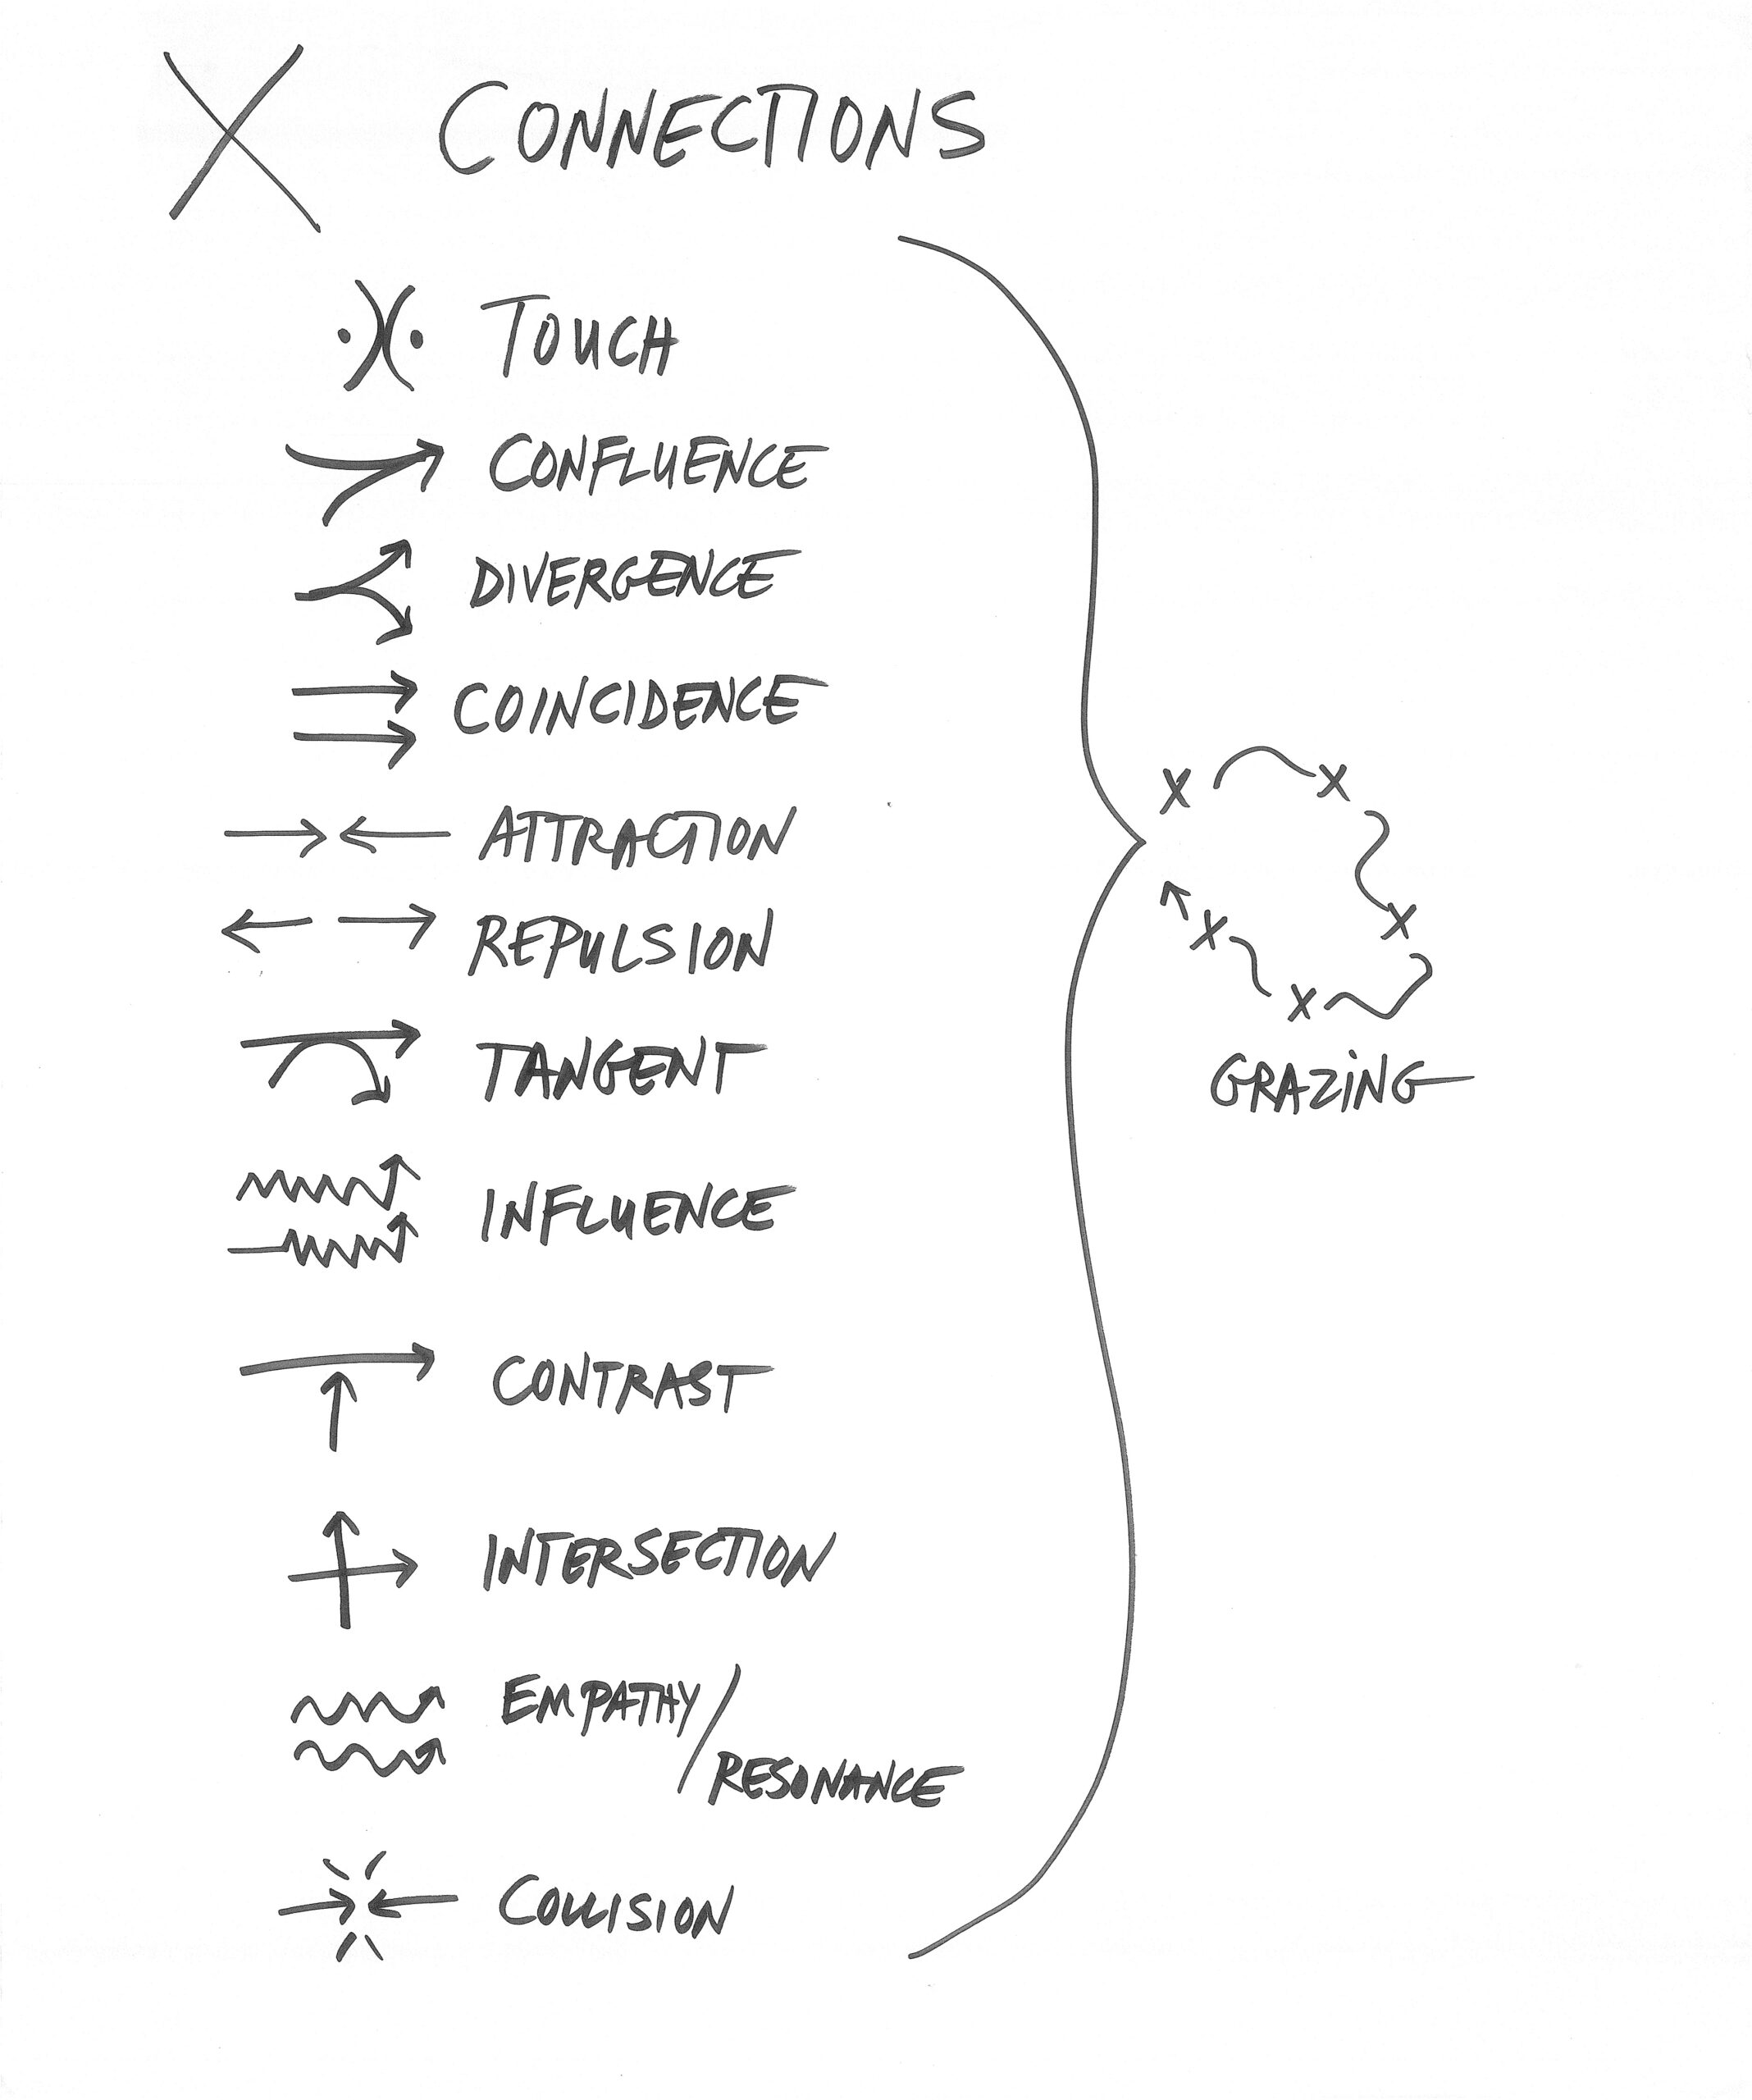 X CONNECTIONS
TOUCH
CONFLUENCE
DIVERGENCE
COINCIDENCE
ATTRACTION
REPULSION
TANGENT
INFLUENCE
CONTRAST
INTERSECTION
EMPATHY/
RESONANCE
COLLISION
X X
X
X
X
GRAZING